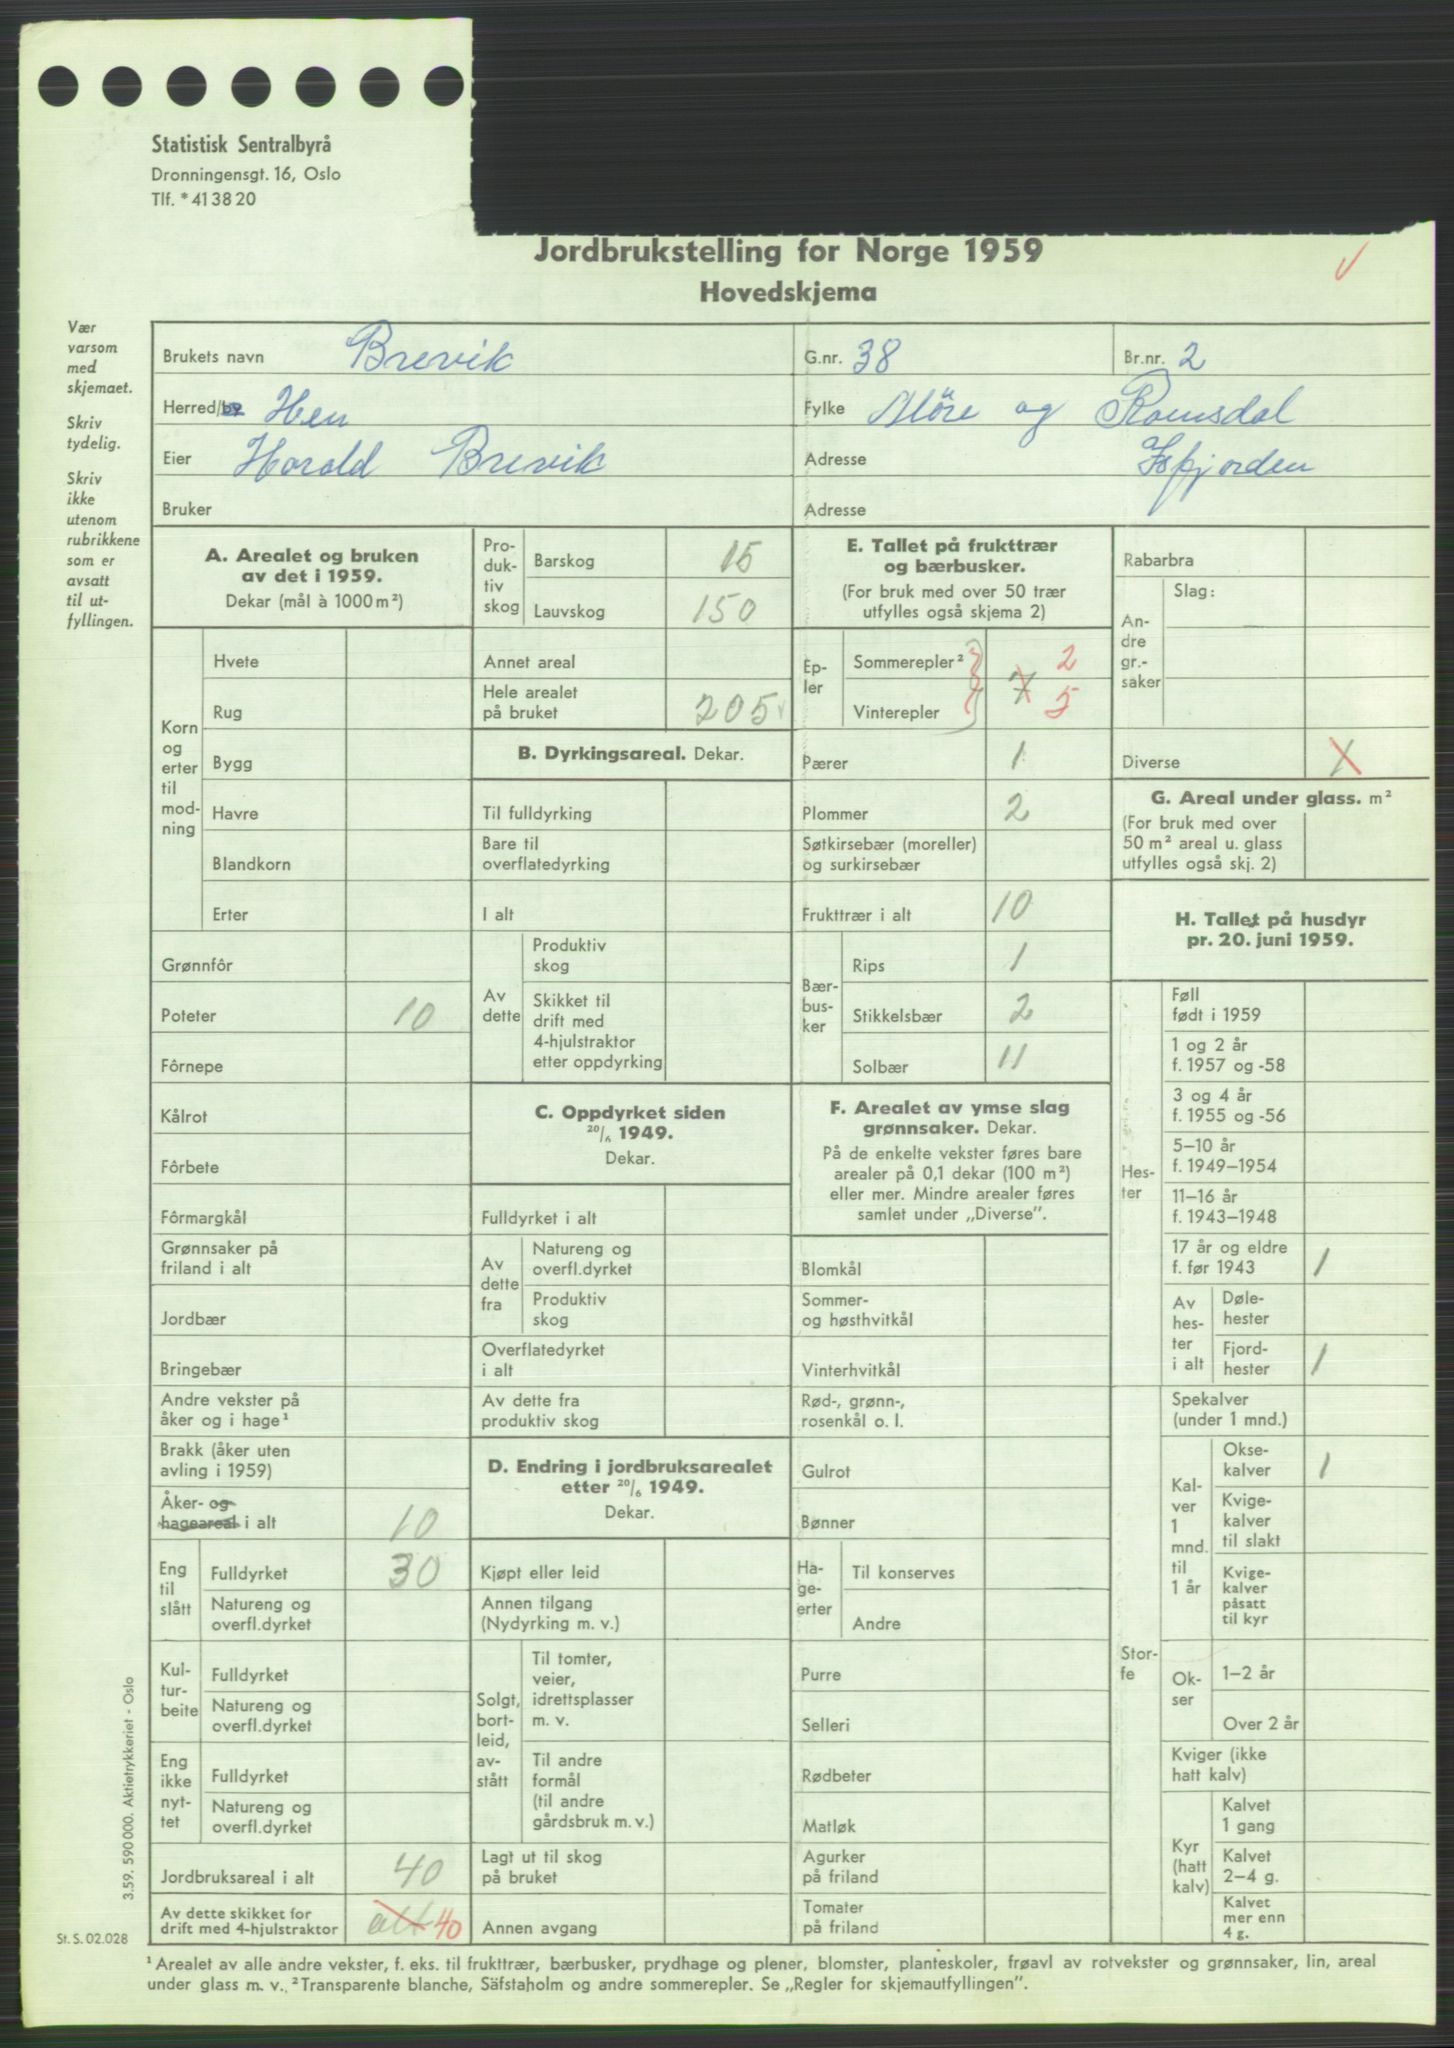 Statistisk Sentralbyrå
Dronningensgt. 16, Oslo
Tlf. * 41 38 20
Jordbrukstelling for Norge 1959
Hovedskjema
Vær
varsom
med
skjemaet.
Skriv
tydelig.
Skriv
ikke
utenom
rubrikkene
som er
avsatt
til ut-
fyllingen.
Brukets navn Brevik G.nr. 38 Br.nr. 2
Herred/by Hen Fylke Möre og Romsdal
Eier Harald Brevik Adresse Isfjorden
Bruker Adresse
A. Arealet og bruken
av det i 1959.
Dekar (mål à 1000 m²)
Korn
og
erter
til
mod-
ning
Hvete
Rug
Bygg
Havre
Blandkorn
Erter
Grønnfôr
Poteter 10
Fôrnepe
Kålrot
Fôrbete
Fôrmargkål
Grønnsaker på
friland i alt
Jordbær
Bringebær
Andre vekster på
åker og i hage¹
Brakk (åker uten
avling i 1959)
Åker- og
hageareal i alt 10
Eng
til
slått
Fulldyrket 30
Natureng og
overfl.dyrket
Kul-
tur-
beite
Fulldyrket
Natureng og
overfl.dyrket
Eng
ikke
nyt-
tet
Fulldyrket
Natureng og
overfl.dyrket
Jordbruksareal i alt 40
Av dette skikket for
drift med 4-hjulstraktor alt 40
Pro-
duk-
tiv
skog
Barskog 15
Lauvskog 150
Annet areal
Hele arealet
på bruket 205
B. Dyrkingsareal. Dekar.
Til fulldyrking
Bare til
overflatedyrking
I alt
Av
dette
Produktiv
skog
Skikket til
drift med
4-hjulstraktor
etter oppdyrking
C. Oppdyrket siden
20/6 1949.
Dekar.
Fulldyrket i alt
Av
dette
fra
Natureng og
overfl.dyrket
Produktiv
skog
Overflatedyrket
i alt
Av dette fra
produktiv skog
D. Endring i jordbruksarealet
etter 20/6 1949.
Dekar.
Kjøpt eller leid
Annen tilgang
(Nydyrking m. v.)
Solgt,
bort-
leid,
av-
stått
Til tomter,
veier,
idrettsplasser
m. v.
Til andre
formål
(til andre
gårdsbruk m. v.)
Lagt ut til skog
på bruket
Annen avgang
E. Tallet på frukttrær
og bærbusker.
(For bruk med over 50 trær
utfylles også skjema 2)
Ep-
ler
Sommerepler² 2
7
Vinterepler 5
Pærer 1
Plommer 2
Søtkirsebær (moreller)
og surkirsebær
Frukttrær i alt 10
Bær-
bus-
ker
Rips 1
Stikkelsbær 2
Solbær 11
F. Arealet av ymse slag
grønnsaker. Dekar.
På de enkelte vekster føres bare
arealer på 0,1 dekar (100 m²)
eller mer. Mindre arealer føres
samlet under „Diverse”.
Blomkål
Sommer-
og høsthvitkål
Vinterhvitkål
Rød-, grønn-,
rosenkål o. l.
Gulrot
Bønner
Ha-
ge-
erter
Til konserves
Andre
Purre
Selleri
Rødbeter
Matløk
Agurker
på friland
Tomater
på friland
Rabarbra
An-
dre
gr.-
saker
Slag:
Diverse X
G. Areal under glass. m²
(For bruk med over
50 m² areal u. glass
utfylles også skj. 2)
H. Tallet på husdyr
pr. 20. juni 1959.
Hes-
ter
Føll
født i 1959
1 og 2 år
f. 1957 og -58
3 og 4 år
f. 1955 og -56
5–10 år
f. 1949–1954
11–16 år
f. 1943–1948
17 år og eldre
f. før 1943 1
Av
hes-
ter
i alt
Døle-
hester
Fjord-
hester 1
Stor-
fe
Spekalver
(under 1 mnd.)
Kal-
ver
1
mnd.
til
1 år
Okse-
kalver 1
Kvige-
kalver
til slakt
Kvige-
kalver
påsatt
til kyr
Ok-
ser
1–2 år
Over 2 år
Kviger (ikke
hatt kalv)
Kyr
(hatt
kalv)
Kalvet
1 gang
Kalvet
2–4 g.
Kalvet
mer enn
4 g.
3.59. 590 000. Aktietrykkeriet - Oslo
St. S. 02.028
¹ Arealet av alle andre vekster, f. eks. til frukttrær, bærbusker, prydhage og plener, blomster, planteskoler, frøavl av rotvekster og grønnsaker, lin, areal
under glass m. v. ² Transparente blanche, Säfstaholm og andre sommerepler. Se „Regler for skjemautfyllingen”.